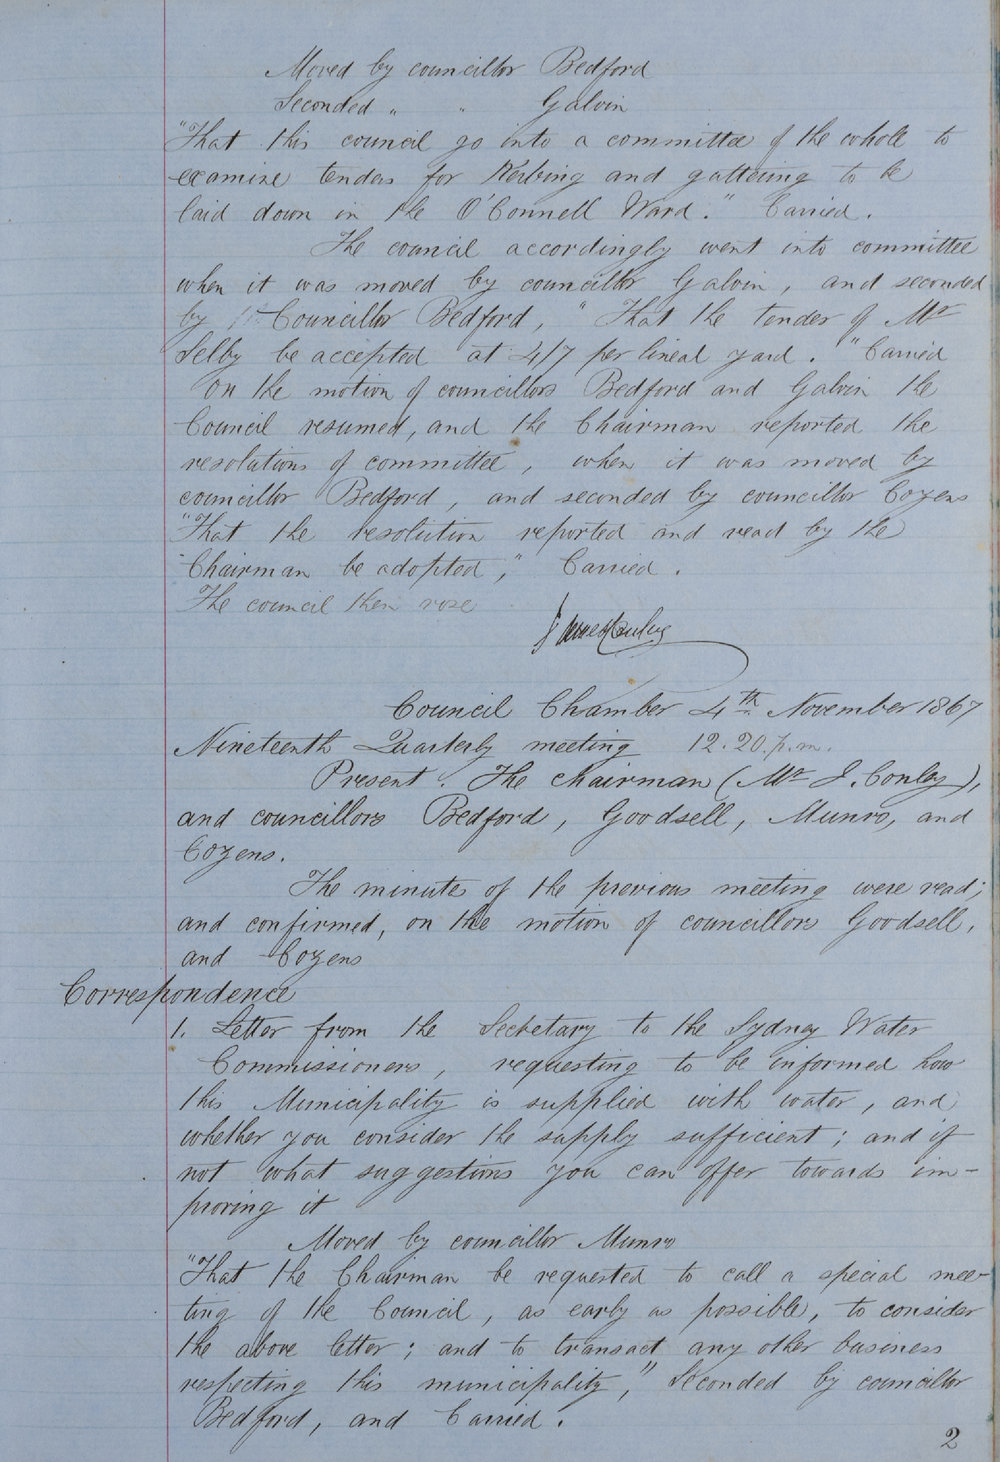 Moved by councillor Bedford
Seconded " " Galvin
"That this council go into a committee of the whole to
examine tenders for Kerbing and guttering to be
laid down in the O'Connell Ward." Carried.
The council accordingly went into committee
when it was moved by councillor Galvin, and seconded
by Councillor Bedford, "That the tender of Mr
Selby be accepted at 4/7 per lineal yard." Carried
On the motion of councillors Bedford and Galvin the
Council resumed, and the Chairman reported the
resolutions of committee, when it was moved by
councillor Bedford, and seconded by councillor Cozens
"That the resolution reported and read by the
Chairman be adopted," Carried.
The council then rose
James Conley
Council Chamber 4th November 1867
Nineteenth Quarterly meeting 12.20.p.m.
Present. The Chairman (Mr J. Conley),
and councillors Bedford, Goodsell, Munro, and
Cozens.
The minutes of the previous meeting were read;
and confirmed, on the motion of councillors Goodsell,
and Cozens
Correspondence
1. Letter from the Secretary to the Sydney Water
Commissioners, requesting to be informed how
this Municipality is supplied with water, and
whether you consider the supply sufficient; and if
not what suggestions you can offer towards im-
proving it
Moved by councillor Munro
"That the Chairman be requested to call a special mee-
ting of the Council, as early as possible, to consider
the above letter; and to transact any other business
respecting this municipality," Seconded by councillor
Bedford, and Carried.
2